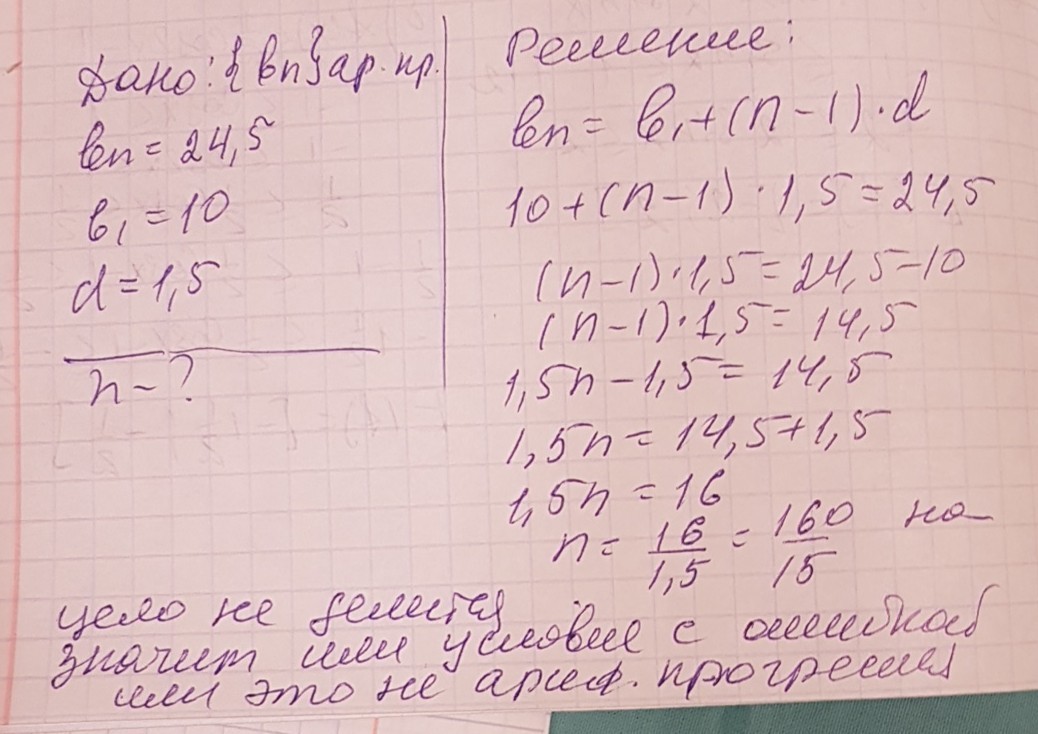 Дано: {bn} ар. пр.
bn = 24,5
b₁ = 10
d = 1,5
n - ?
Решение:
bn = b₁ + (n - 1) · d
10 + (n - 1) · 1,5 = 24,5
(n - 1) · 1,5 = 24,5 - 10
(n - 1) · 1,5 = 14,5
1,5n - 1,5 = 14,5
1,5n = 14,5 + 1,5
1,5n = 16
n = 16/1,5 = 160/15 на
цело не делится
значит или условие с ошибкой
или это не ариф. прогрессия